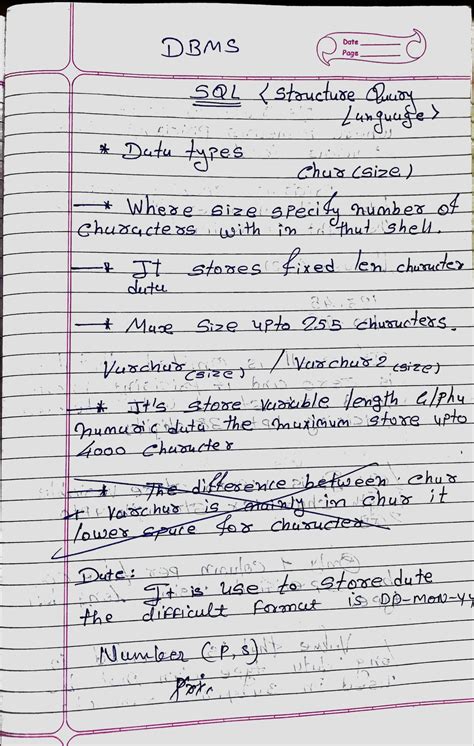 DBMS
Date
Page
SQL < Structure Query
Language >
* Data types
Char (size)
* Where size specify number of
characters with in that shell.
* It stores fixed len character
data
* Max size upto 255 characters.
Varchar (size) / Varchar2 (size)
* It's store variable length Alpha
numaric data the maximum store upto
4000 character
* The difference between char
+ varchar is mainly in char it
lower space for character
Date:
It is use to store date
the difficult format is DD-MON-YY
Number (P, S)